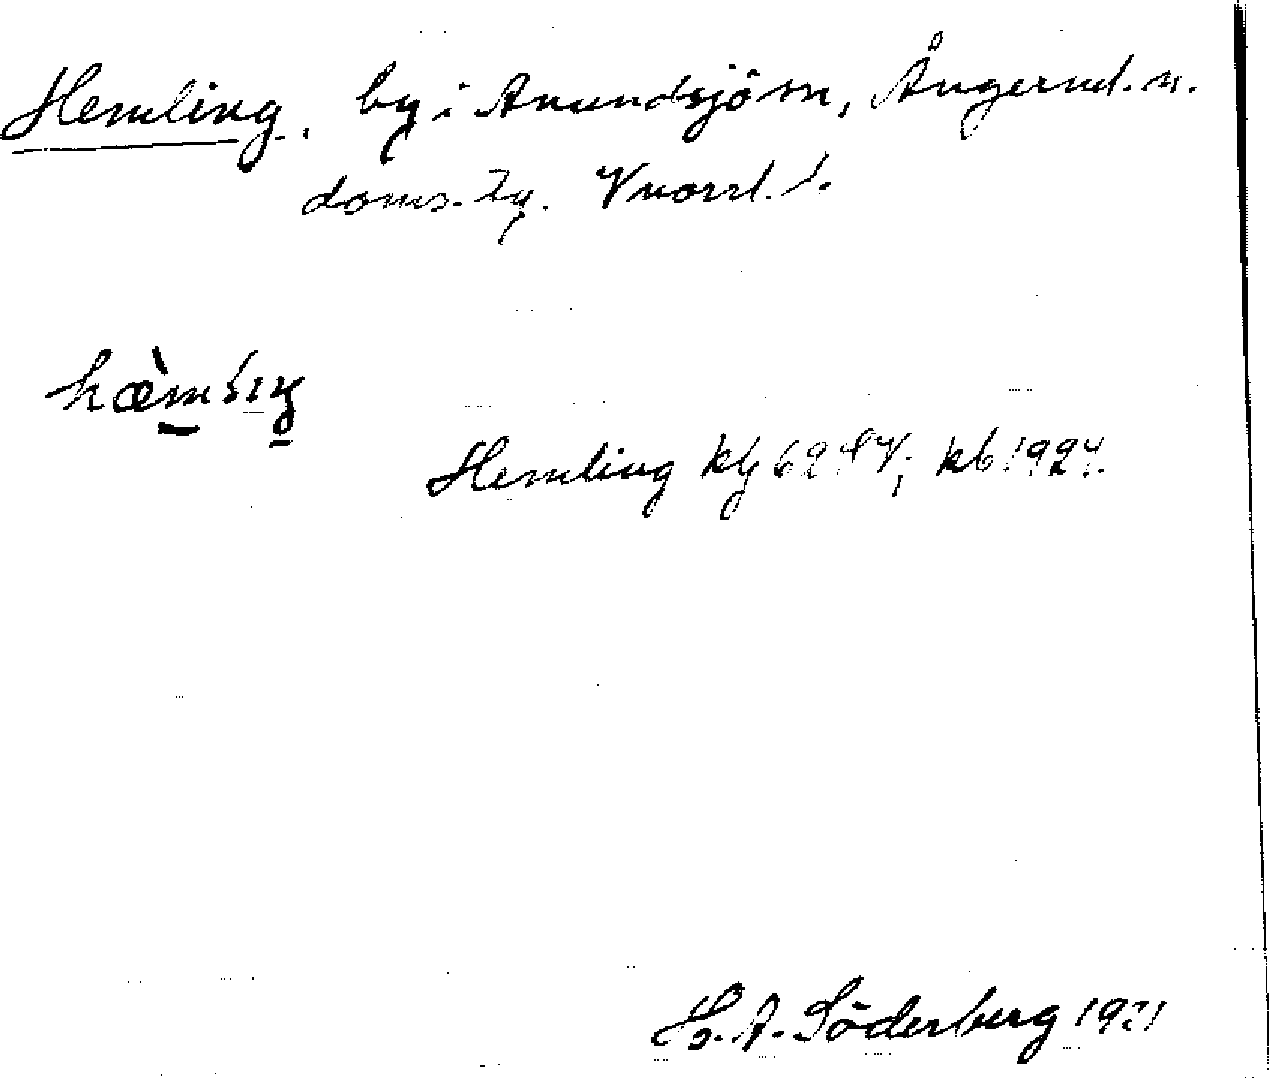 Hemling. by i Anundsjö sn, Ångerml. n.
doms. tg. Vnorrl. l.
hæ̀mḷıŋ
Hemling kb 1924.
H. A. Söderberg